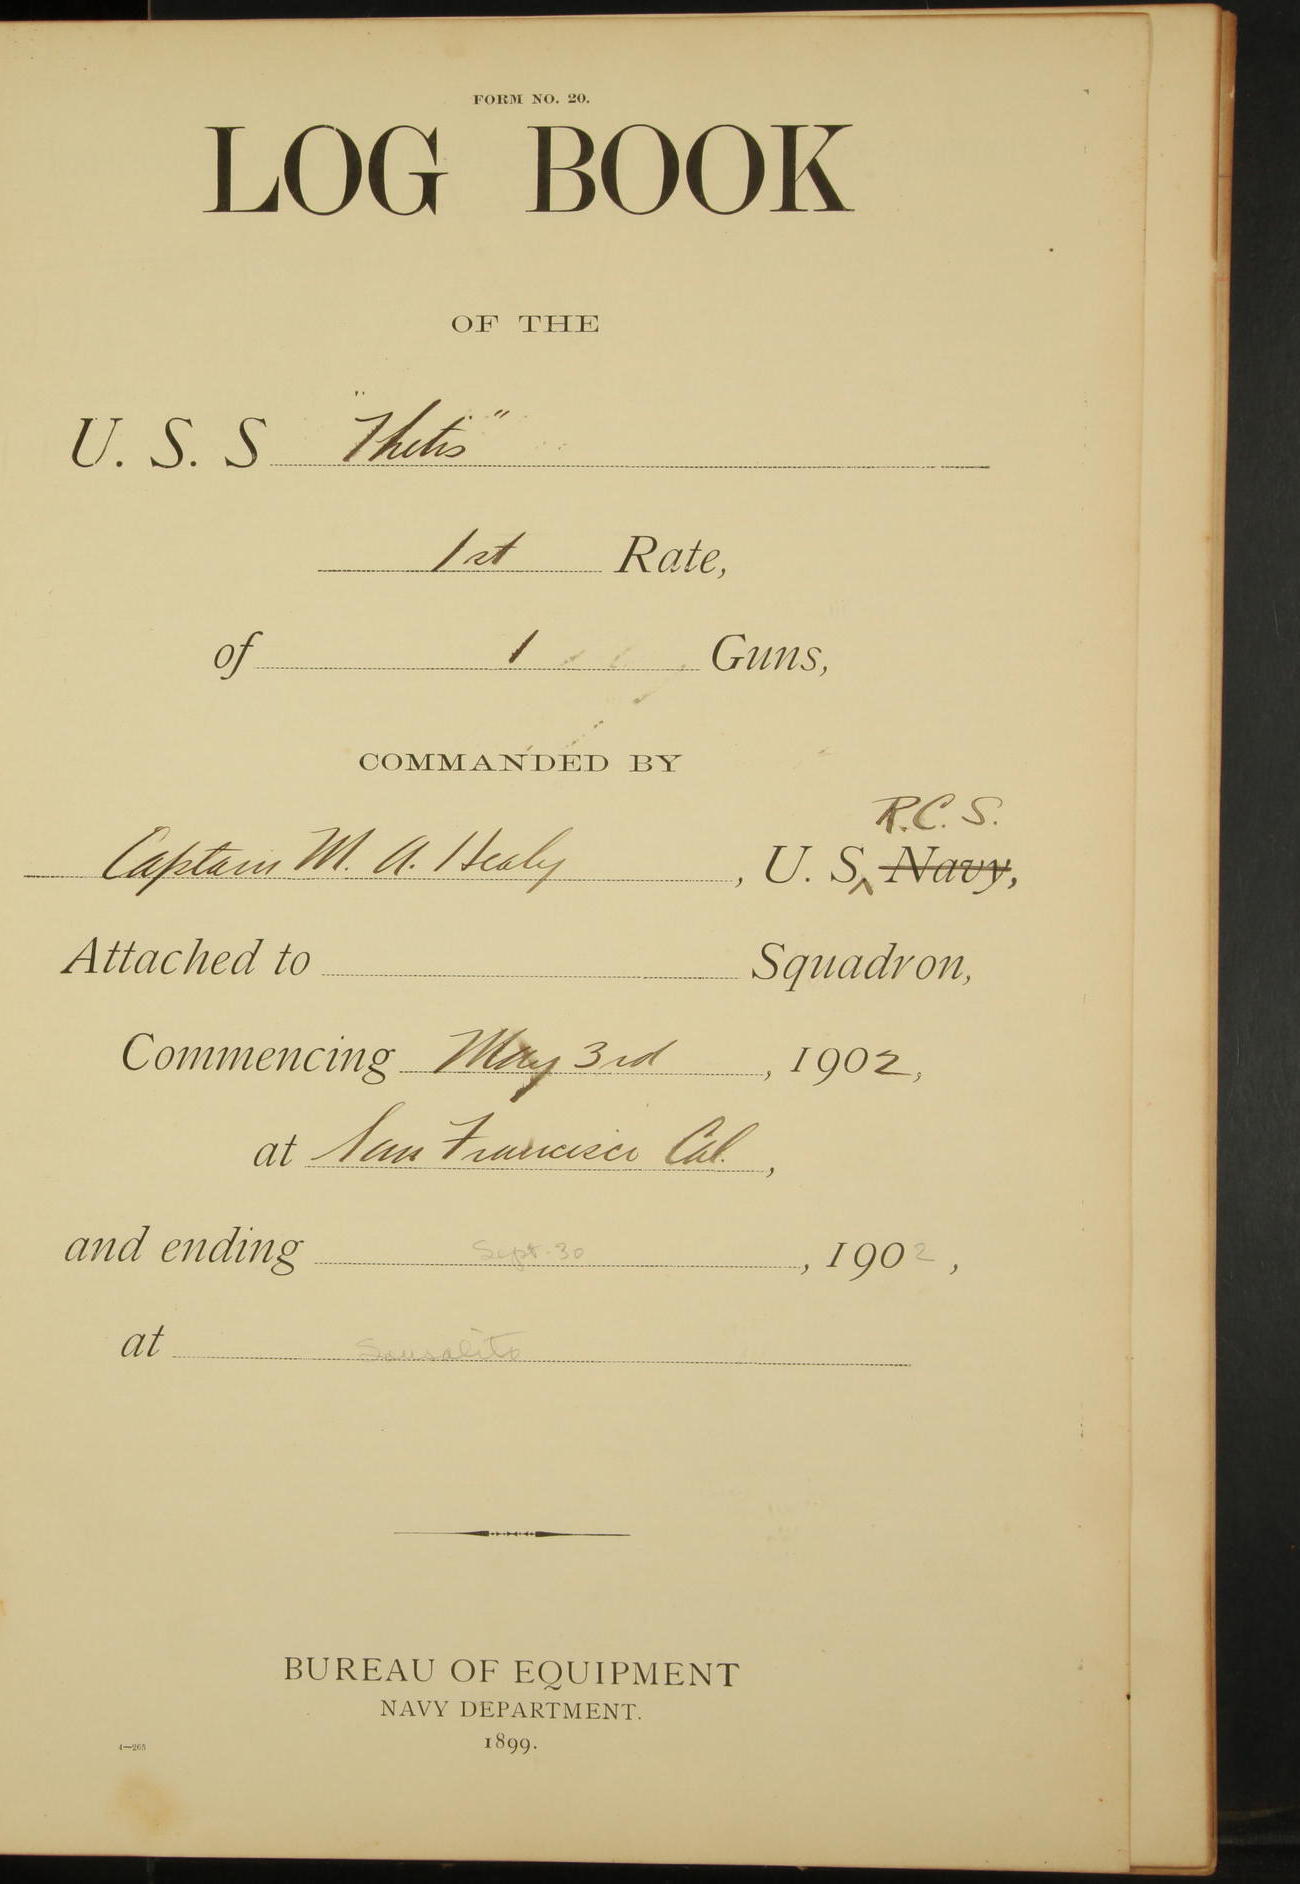 FORM NO. 20.
LOG BOOK
OF THE
U. S. S "Thetis"
1st Rate,
of 1 Guns,
COMMANDED BY
R.C.S.
Captain M. A. Healy, U. S. ^ Navy,
Attached to Squadron,
Commencing May 3rd, 1902,
at San Francisco Cal.,
and ending Sept. 30, 1902,
at Sausalito
BUREAU OF EQUIPMENT
NAVY DEPARTMENT.
1899.
4—265